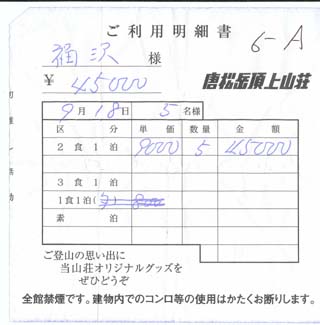 ご利用明細書
6-A
福沢 様
¥ 45000
唐松岳頂上山荘
9月18日 5名様
区分 単価 数量 金額
2食1泊 9000 5 45000
3食1泊
1食1泊( ) 8000
素泊
ご登山の思い出に
当山荘オリジナルグッズを
ぜひどうぞ
全館禁煙です。建物内でのコンロ等の使用はかたくお断りします。